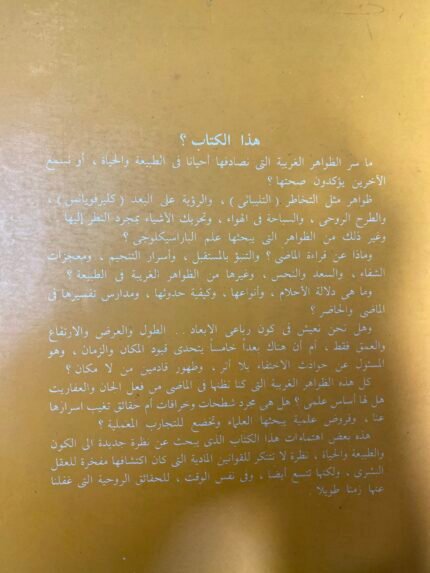 هذا الكتاب ؟
ما سر الظواهر الغريبة التى نصادفها أحيانا فى الطبيعة والحياة ، أو نسمع
الآخرين يؤكدون صحتها ؟
ظواهر مثل التخاطر ( التليباثى ) ، والرؤية على البعد ( كليرفويانس ) ،
والطرح الروحى ، والسباحة فى الهواء ، وتحريك الأشياء بمجرد النظر إليها
وغير ذلك من الظواهر التى يبحثها علم الباراسيكلوجى ؟
وماذا عن قراءة الماضى ؟ والتنبؤ بالمستقبل ، وأسرار التنجيم ، ومعجزات
الشفاء ، والسعد والنحس ، وغيرها من الظواهر الغريبة فى الطبيعة ؟
وما هى دلالة الأحلام ، وأنواعها ، وكيفية حدوثها ، ومدارس تفسيرها فى
الماضى والحاضر ؟
وهل نحن نعيش فى كون رباعى الابعاد ... الطول والعرض والارتفاع
والعمق فقط ، أم أن هناك بعداً خامساً يتحدى قيود المكان والزمان ، وهو
المسئول عن حوادث الاختفاء بلا أثر ، وظهور قادمين من لا مكان ؟
كل هذه الظواهر الغريبة التى كنا نظنها فى الماضى من فعل الجان والعفاريت
هل لها أساس علمى ؟ هل هى مجرد شطحات وخرافات أم حقائق تغيب اسرارها
عنا ، وفروض علمية يبحثها العلماء وتخضع للتجارب المعملية ؟
هذه بعض اهتمامات هذا الكتاب الذى يبحث عن نظرة جديدة الى الكون
والطبيعة والحياة ، نظرة لا تتنكر للقوانين المادية التى كان اكتشافها مفخرة للعقل
البشرى ، ولكنها تتسع أيضا ، وفى نفس الوقت ، للحقائق الروحية التى غفلنا
عنها زمنا طويلا .